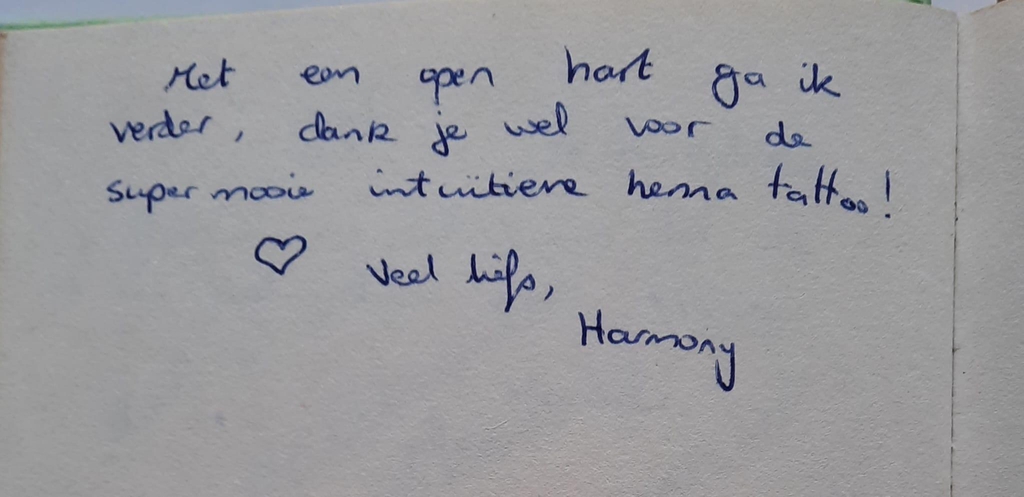 Met een open hart ga ik
verder, dank je wel voor de
super mooie intuïtieve henna tattoo!
♡ Veel liefs,
Harmony